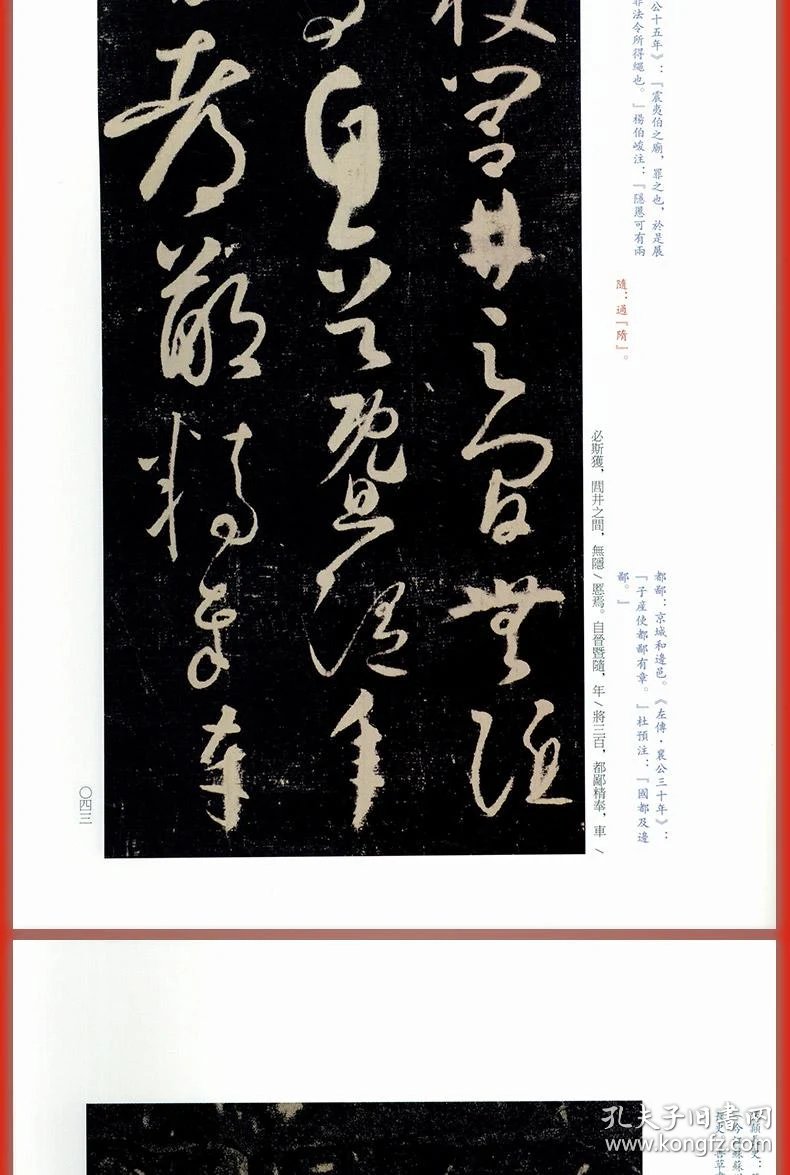 公十五年》：『震夷伯之廟，罪之也，於是展
非法令所得繩也。』楊伯峻注：『隱慝可有兩
隨：通『隋』。
都鄙：京城和邊邑。《左傳·襄公三十年》：
『子産使都鄙有章。』杜預注：『國都及邊
鄙。』
必斯獲，閭井之間，無隱/慝焉。自晉暨隨，年/將三百，都鄙精奉，車/
獲閭井之間無隱
焉自晉暨隨年
都鄙精奉車
〇四三
孔夫子旧书网
www.kongfz.com